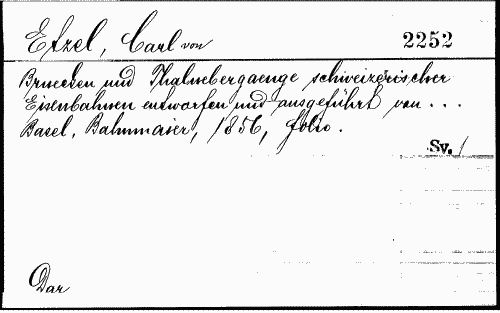 Etzel, Carl von 2252
Bruecken und Thaluebergaenge schweizerischer
Eisenbahnen entworfen und ausgeführt von ...
Basel, Bahnmaier, 1856, folio.
Sv. 1
Dar